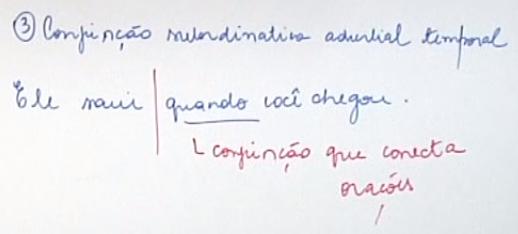 ③ Conjunção subordinativa adverbial temporal
Ele saiu | quando você chegou.
└ conjunção que conecta
orações
/